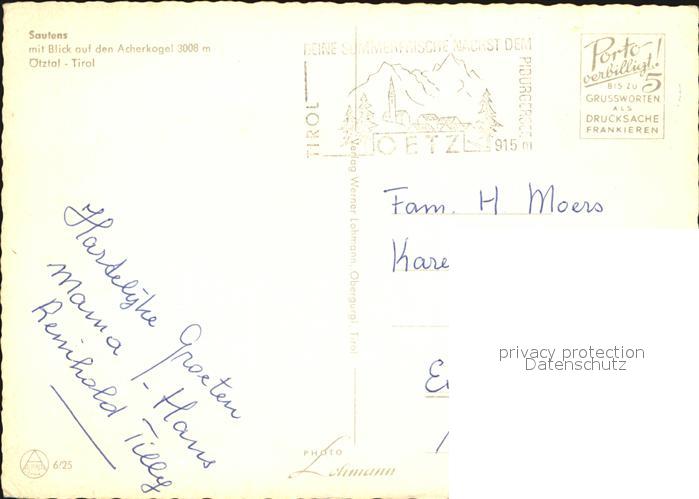 Sautens
mit Blick auf den Acherkogel 3008 m
Ötztal - Tirol
DEINE SOMMERFRISCHE NÄCHST DEM
PIBURGERSEE
TIROL
OETZ
915 m
Porto
verbilligt!
BIS ZU 5
GRUSSWORTEN
ALS
DRUCKSACHE
FRANKIEREN
Verlag Werner Lohmann, Obergurgl, Tirol
Fam. H Moers
Kare
privacy protection
Datenschutz
Hartelijke Groeten
Mama - Hans
Reinhold Tilly
6/25
PHOTO
Lohmann